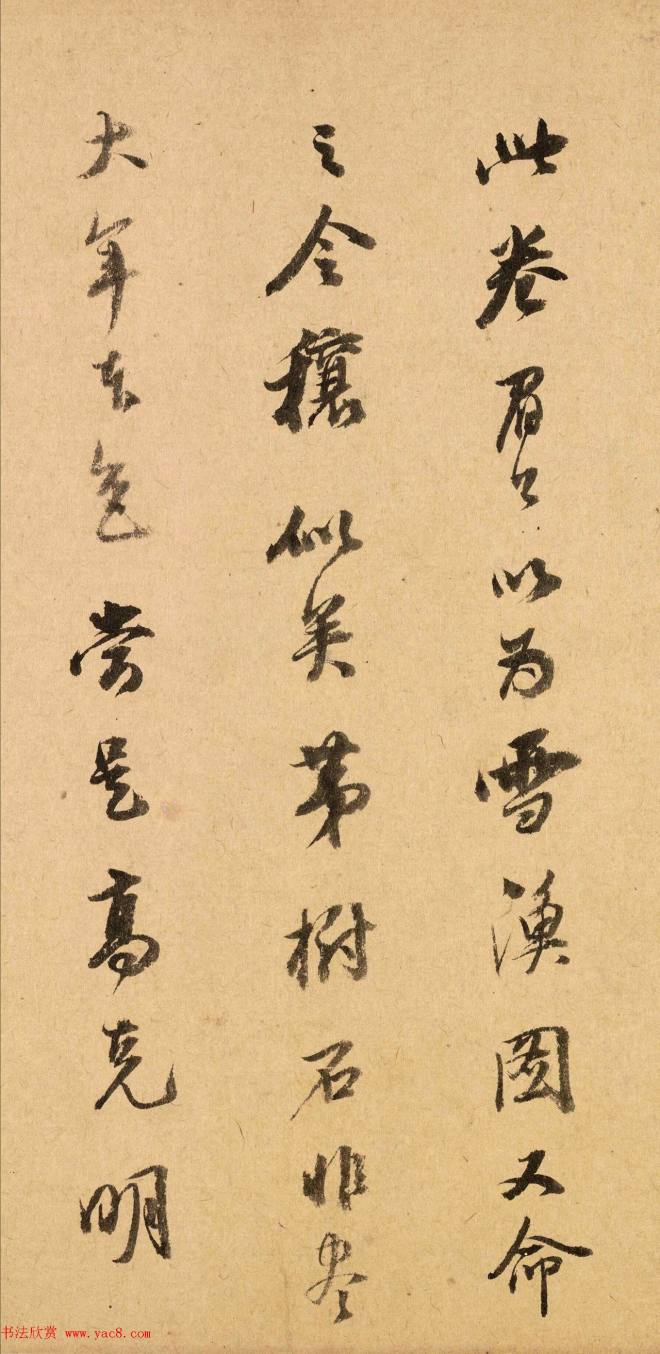 此卷眉公以为雪渔图又命
之令穰似矣第树石非尽
大年本色当是高克明
书法欣赏 www.yac8.com